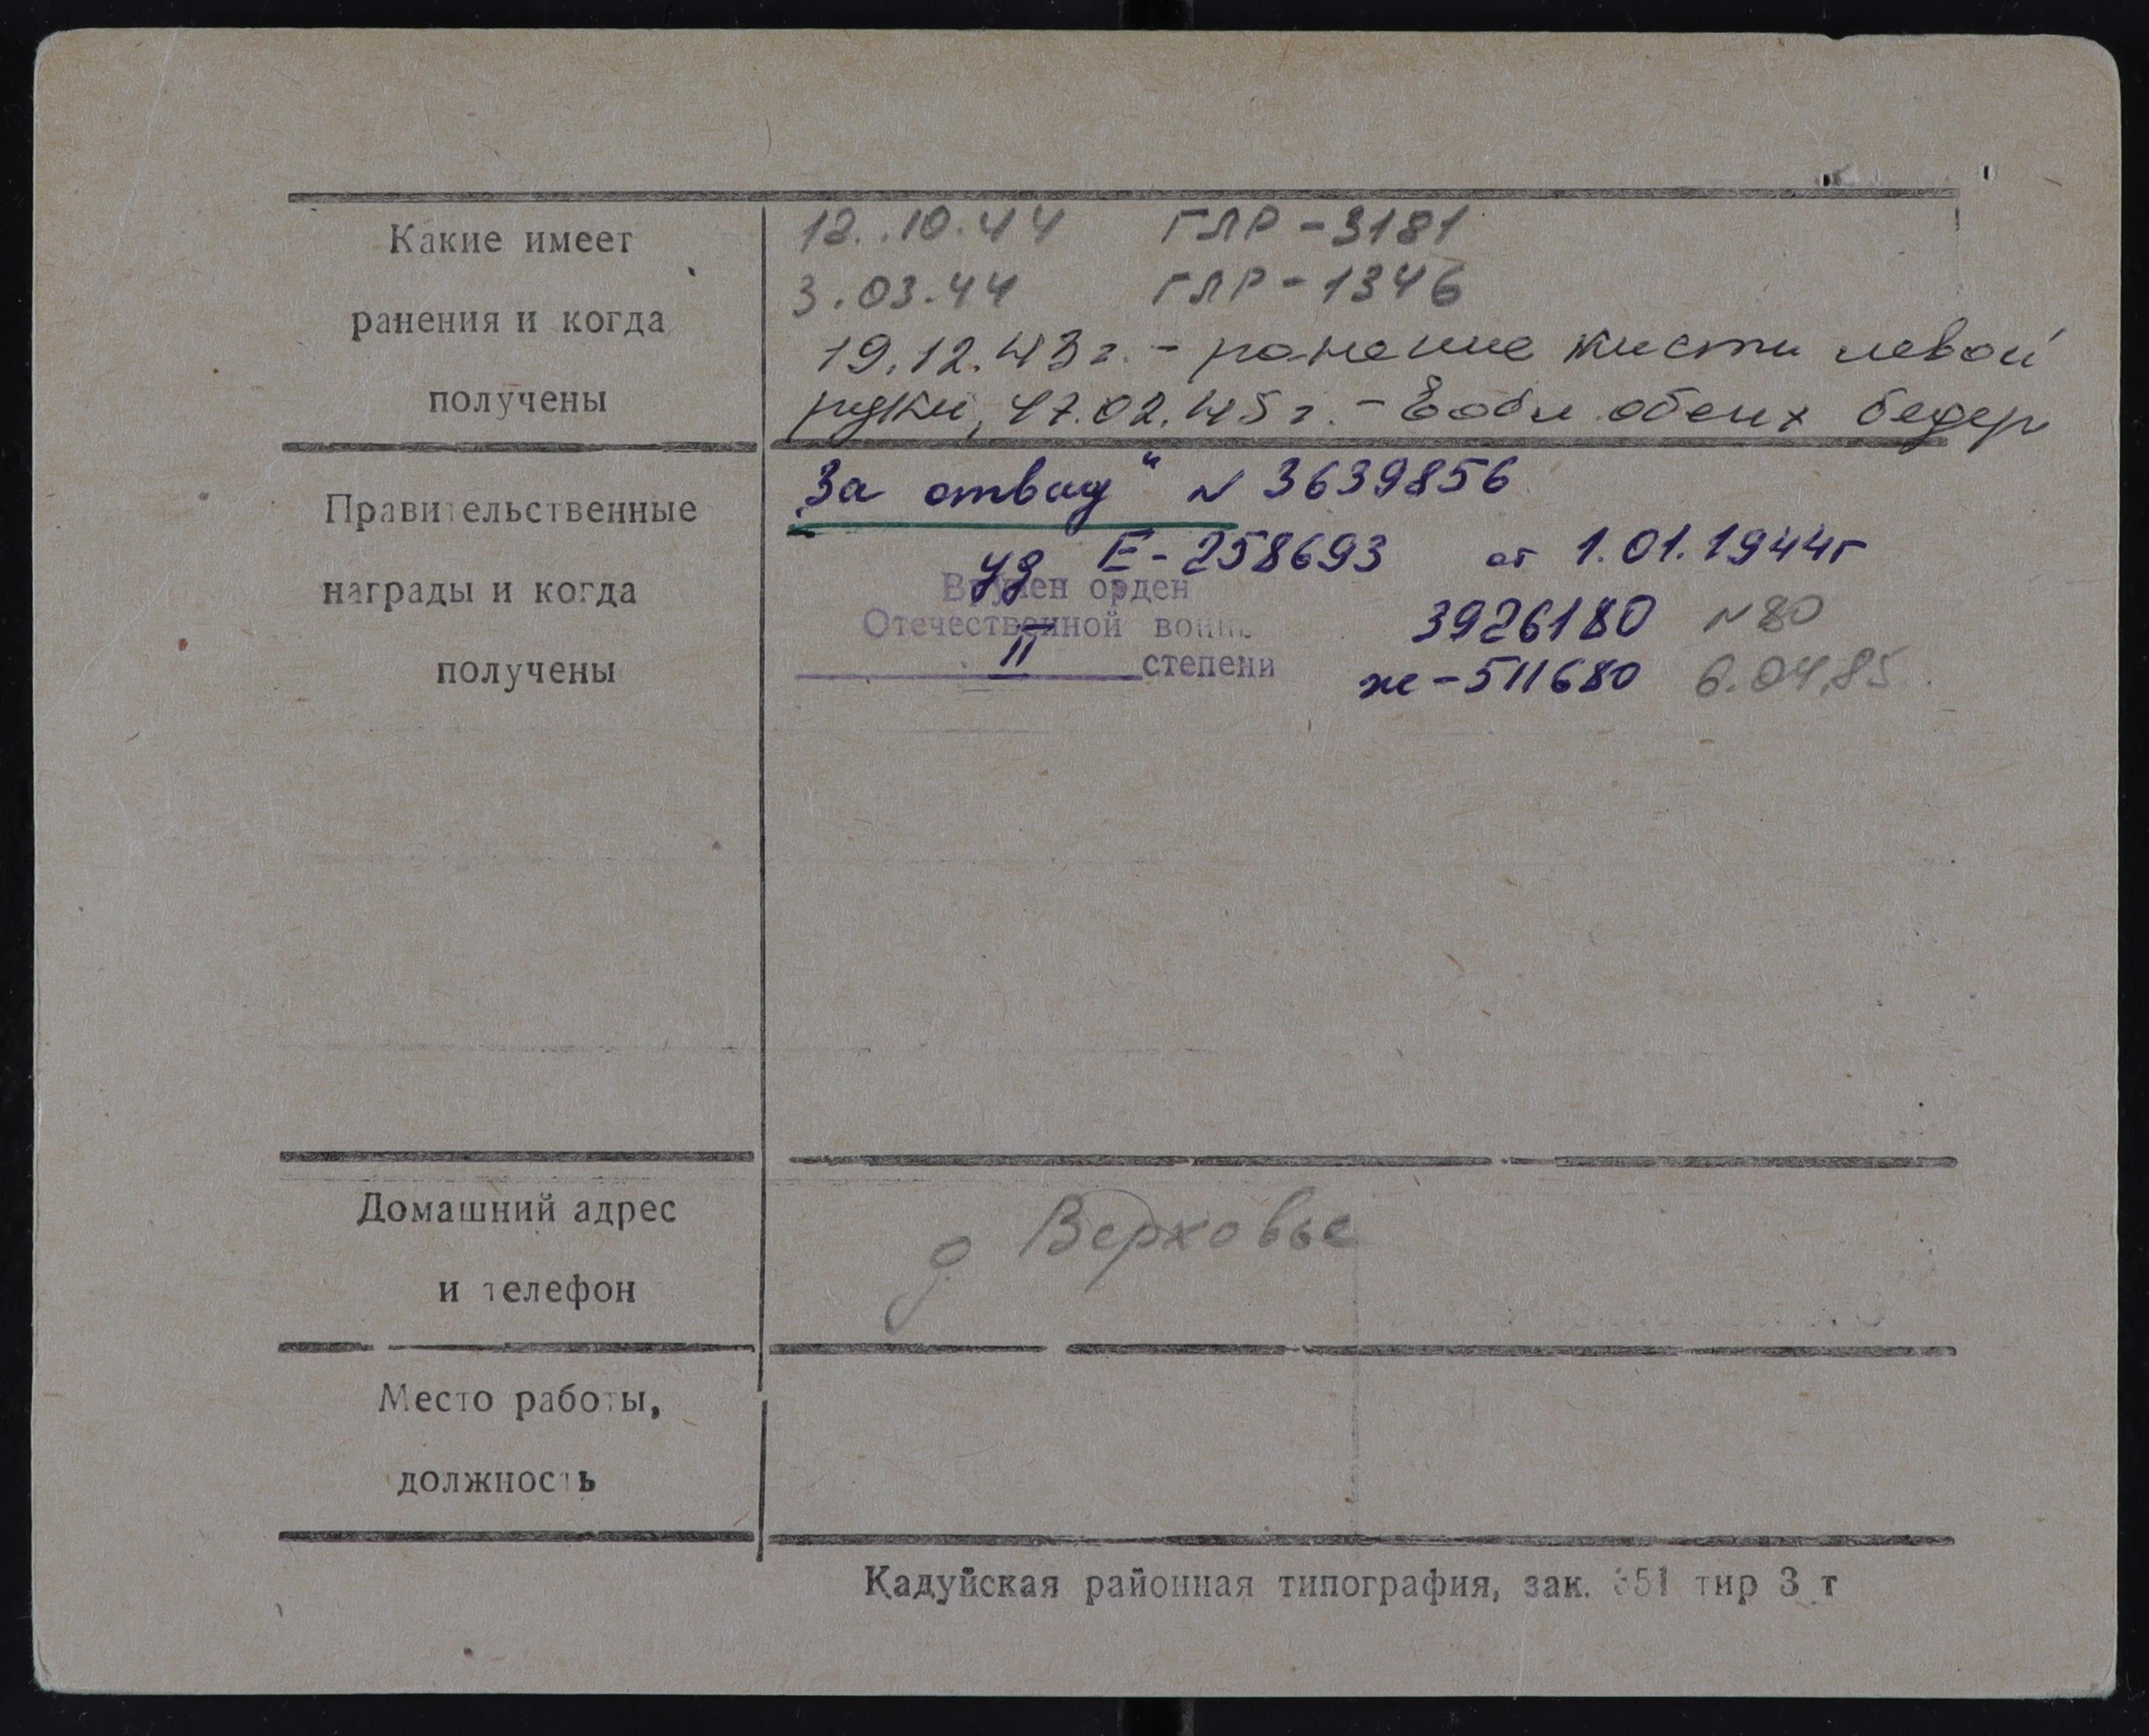 Какие имеет
ранения и когда
получены
12.10.44 ГЛР-3181
3.03.44 ГЛР-1346
19.12.43г. - ранение кисти левой
руки, 17.02.45г. - обеих бедер
Правительственные
награды и когда
получены
„За отвагу" N 3639856
уд Е-258693 от 1.01.1944г
Вручен орден
Отечественной войны
II степени
3926180 N80
ж-511680 6.04.85.
Домашний адрес
и телефон
д Верховье
Место работы,
должность
Кадуйская районная типография, зак. тир 3 т